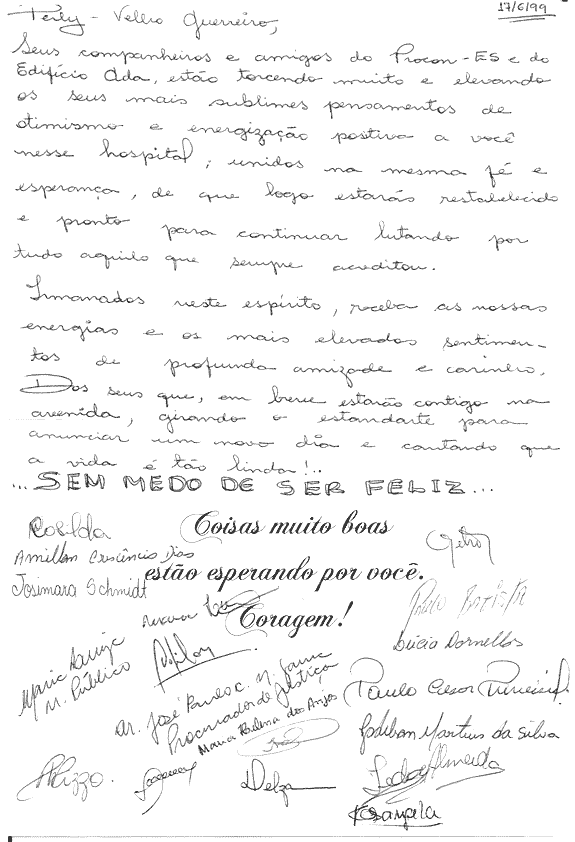 17/6/99
Perly - Velho Guerreiro,
Seus companheiros e amigos do Procon-ES e do
Edifício Ada, estão torcendo muito e elevando
os seus mais sublimes pensamentos de
otimismo e energização positiva a você
nesse hospital; unidos na mesma fé e
esperança, de que logo estarás restabelecido
e pronto para continuar lutando por
tudo aquilo que sempre acreditou.
Irmanados neste espírito, receba as nossas
energias e os mais elevados sentimen-
tos de profunda amizade e carinho.
Dos seus que, em breve estarão contigo na
avenida, girando o estandarte para
anunciar um novo dia e cantando que
a vida é tão linda!..
...SEM MEDO DE SER FELIZ...
Rosilda
Coisas muito boas
Amillon Crescêncio Dias
estão esperando por você.
Josimara Schmidt
Coragem!
Paulo Batista
Lúcio Dornellos
Maria
M. Público
Dr. José Paulo C. N.
Procurador de Justiça
Maria Helena dos Anjos
Paulo Cesar
Martins da Silva
Almeida
Delza
Rosangela